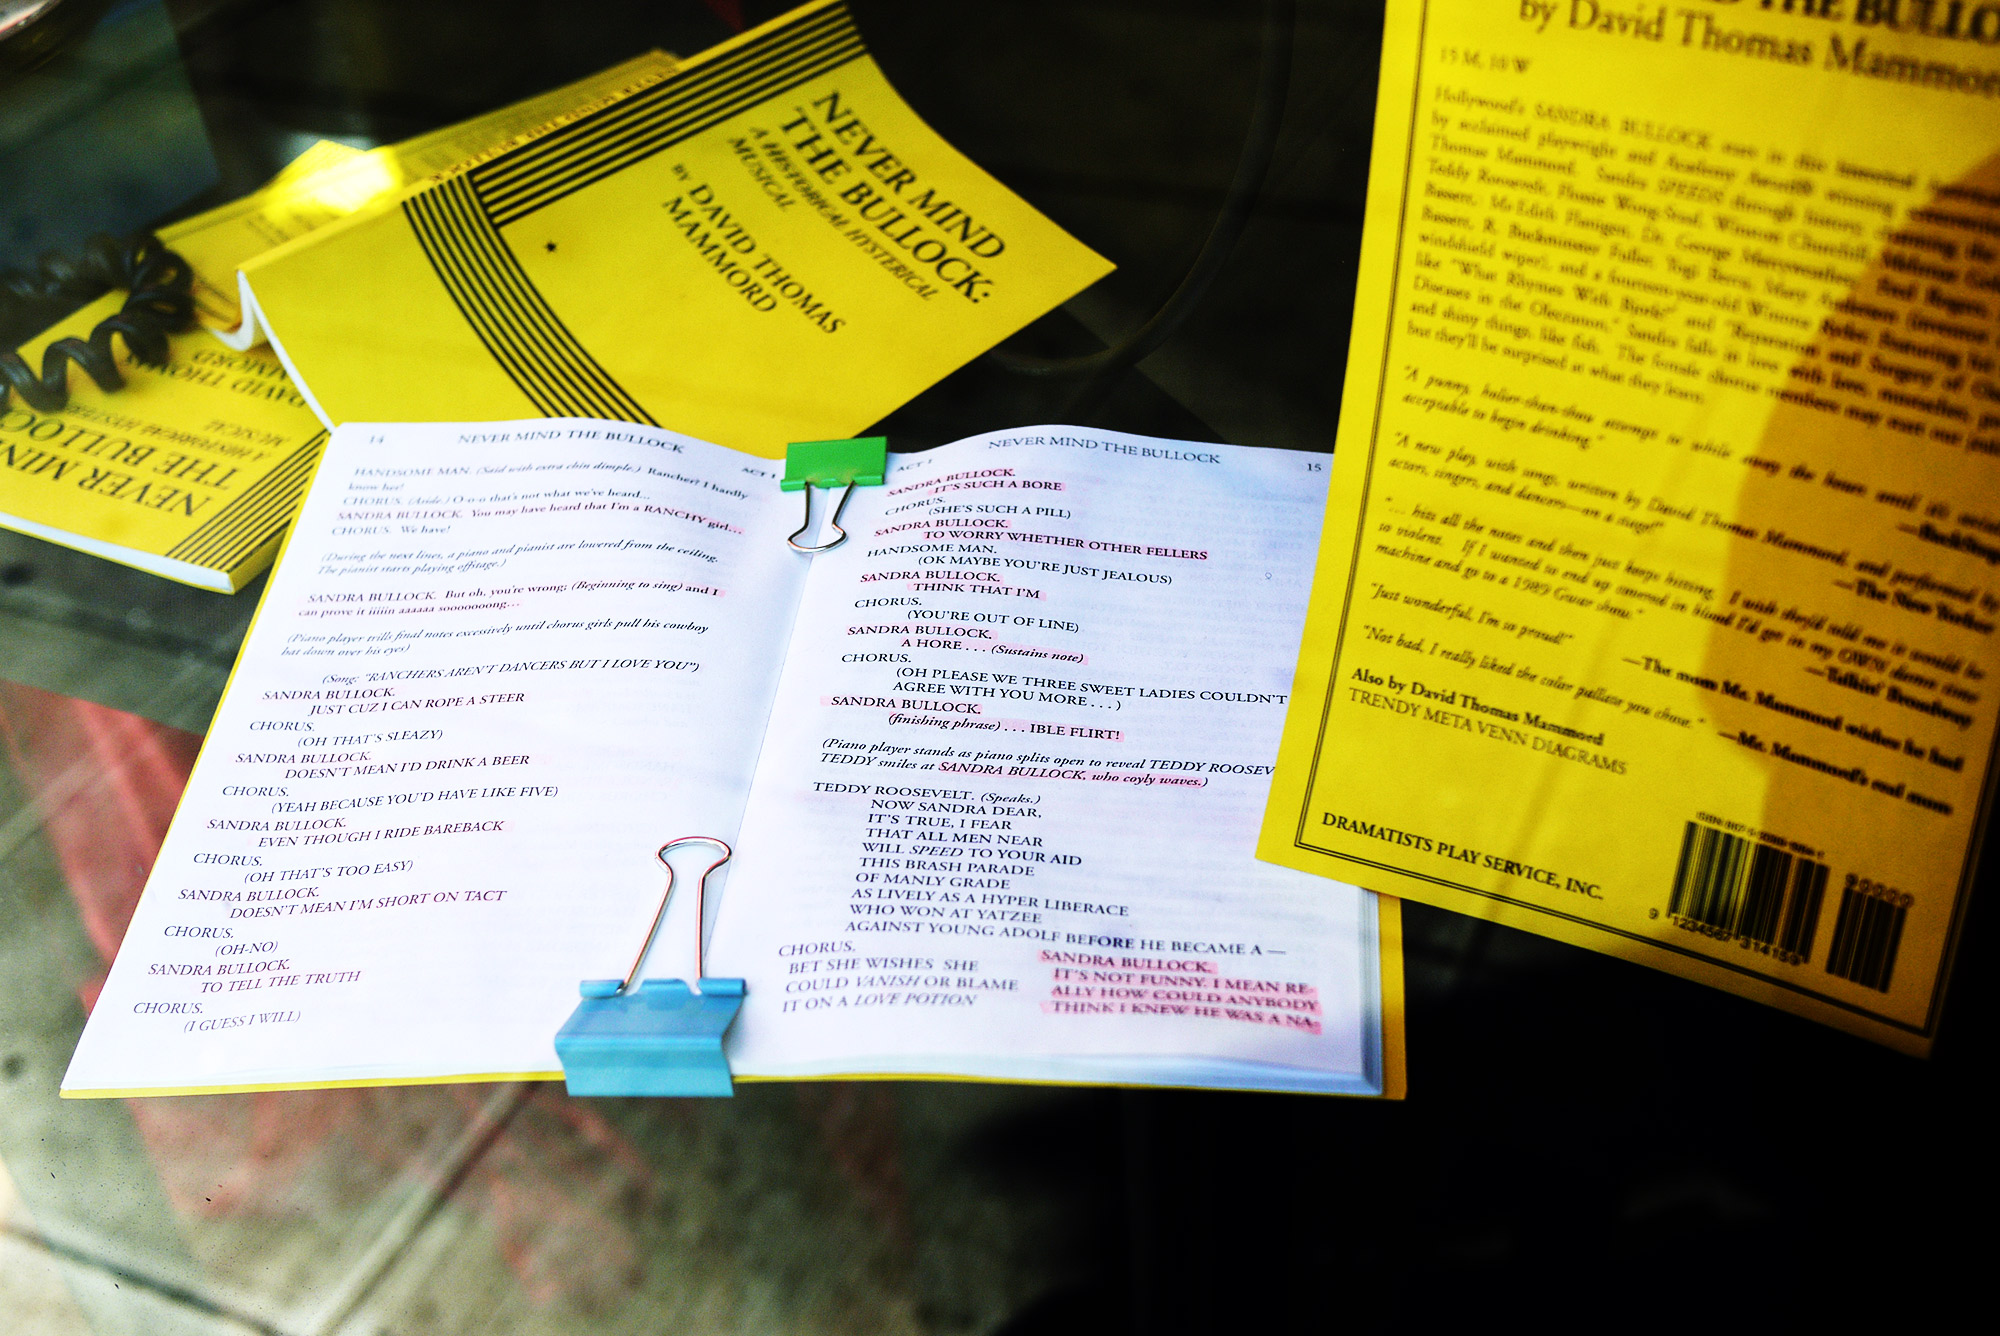 NEVER MIND
THE BULLOCK:
A HISTORICAL HYSTERICAL
MUSICAL
BY DAVID THOMAS
MAMMORD
NEVER MIN
THE BULLOC
A HISTORICAL HYSTER
MUSICAL
DAVID THOM
MMORD
14
NEVER MIND THE BULLOCK
ACT I
HANDSOME MAN. (Said with extra chin dimple.) Rancher? I hardly
know her!
CHORUS. (Aside.) O-o-o that's not what we've heard...
SANDRA BULLOCK. You may have heard that I'm a RANCHY girl...
CHORUS. We have!
(During the next lines, a piano and pianist are lowered from the ceiling.
The pianist starts playing offstage.)
SANDRA BULLOCK. But oh, you're wrong; (Beginning to sing) and I
can prove it iiiiiin aaaaaa sooooooong...
(Piano player trills final notes excessively until chorus girls pull his cowboy
hat down over his eyes)
(Song: "RANCHERS AREN'T DANCERS BUT I LOVE YOU")
SANDRA BULLOCK.
JUST CUZ I CAN ROPE A STEER
CHORUS.
(OH THAT'S SLEAZY)
SANDRA BULLOCK.
DOESN'T MEAN I'D DRINK A BEER
CHORUS.
(YEAH BECAUSE YOU'D HAVE LIKE FIVE)
SANDRA BULLOCK.
EVEN THOUGH I RIDE BAREBACK
CHORUS.
(OH THAT'S TOO EASY)
SANDRA BULLOCK.
DOESN'T MEAN I'M SHORT ON TACT
CHORUS.
(OH-NO)
SANDRA BULLOCK.
TO TELL THE TRUTH
CHORUS.
(I GUESS I WILL)
ACT I
NEVER MIND THE BULLOCK
15
SANDRA BULLOCK.
IT'S SUCH A BORE
CHORUS.
(SHE'S SUCH A PILL)
SANDRA BULLOCK.
TO WORRY WHETHER OTHER FELLERS
HANDSOME MAN.
(OK MAYBE YOU'RE JUST JEALOUS)
SANDRA BULLOCK.
THINK THAT I'M
CHORUS.
(YOU'RE OUT OF LINE)
SANDRA BULLOCK.
A HORE . . . (Sustains note)
CHORUS.
(OH PLEASE WE THREE SWEET LADIES COULDN'T
AGREE WITH YOU MORE . . . )
SANDRA BULLOCK.
(finishing phrase) . . . IBLE FLIRT!
(Piano player stands as piano splits open to reveal TEDDY ROOSEV
TEDDY smiles at SANDRA BULLOCK, who coyly waves.)
TEDDY ROOSEVELT. (Speaks.)
NOW SANDRA DEAR,
IT'S TRUE, I FEAR
THAT ALL MEN NEAR
WILL SPEED TO YOUR AID
THIS BRASH PARADE
OF MANLY GRADE
AS LIVELY AS A HYPER LIBERACE
WHO WON AT YATZEE
AGAINST YOUNG ADOLF BEFORE HE BECAME A —
CHORUS.
BET SHE WISHES SHE
COULD VANISH OR BLAME
IT ON A LOVE POTION
SANDRA BULLOCK.
IT'S NOT FUNNY. I MEAN RE-
ALLY HOW COULD ANYBODY
THINK I KNEW HE WAS A NA-
D THE BULLO
by David Thomas Mammor
15 M, 10 W
Hollywood's SANDRA BULLOCK in this
by acclaimed playwright and Academy winning
Thomas Mammord. Sandra SPEEDS through history
Teddy Roosevelt, Winston Churchill,
Bassett, Ms Edith Flanigen, Dr. George Merryweather, Fred Rogers,
Bassett, R. Buckminster Fuller, Yogi Berra, Mary Anderson
windshield wiper), and a fourteen-year-old Winona Ryder. Featuring
like "What Rhymes With and "Reparation and Surgery of
Diseases in the Sandra falls in love with love,
and shiny things, like fish. The female chorus members may
but they'll be surprised at what they learn.
"A punny, holier-than-thou attempt to while away the hours until it's
acceptable to begin drinking."
"A new play, with songs, written by David Thomas Mammord, and performed by
actors, singers, and dancers—on a stage!"
—The New Yorker
"... hits all the notes and then just keeps hitting. I wish they'd told me it would be
so violent. If I wanted to end up smeared in blood I'd get in my OWN time
machine and go to a 1989 Gwar show."
—Talkin' Broadway
"Just wonderful, I'm so proud!"
—The mom Mr. Mammord wishes he had
"Not bad, I really liked the color pallette you chose."
—Mr. Mammord's real mom
Also by David Thomas Mammord
TRENDY META VENN DIAGRAMS
DRAMATISTS PLAY SERVICE, INC.
90000
9 1234567 314159